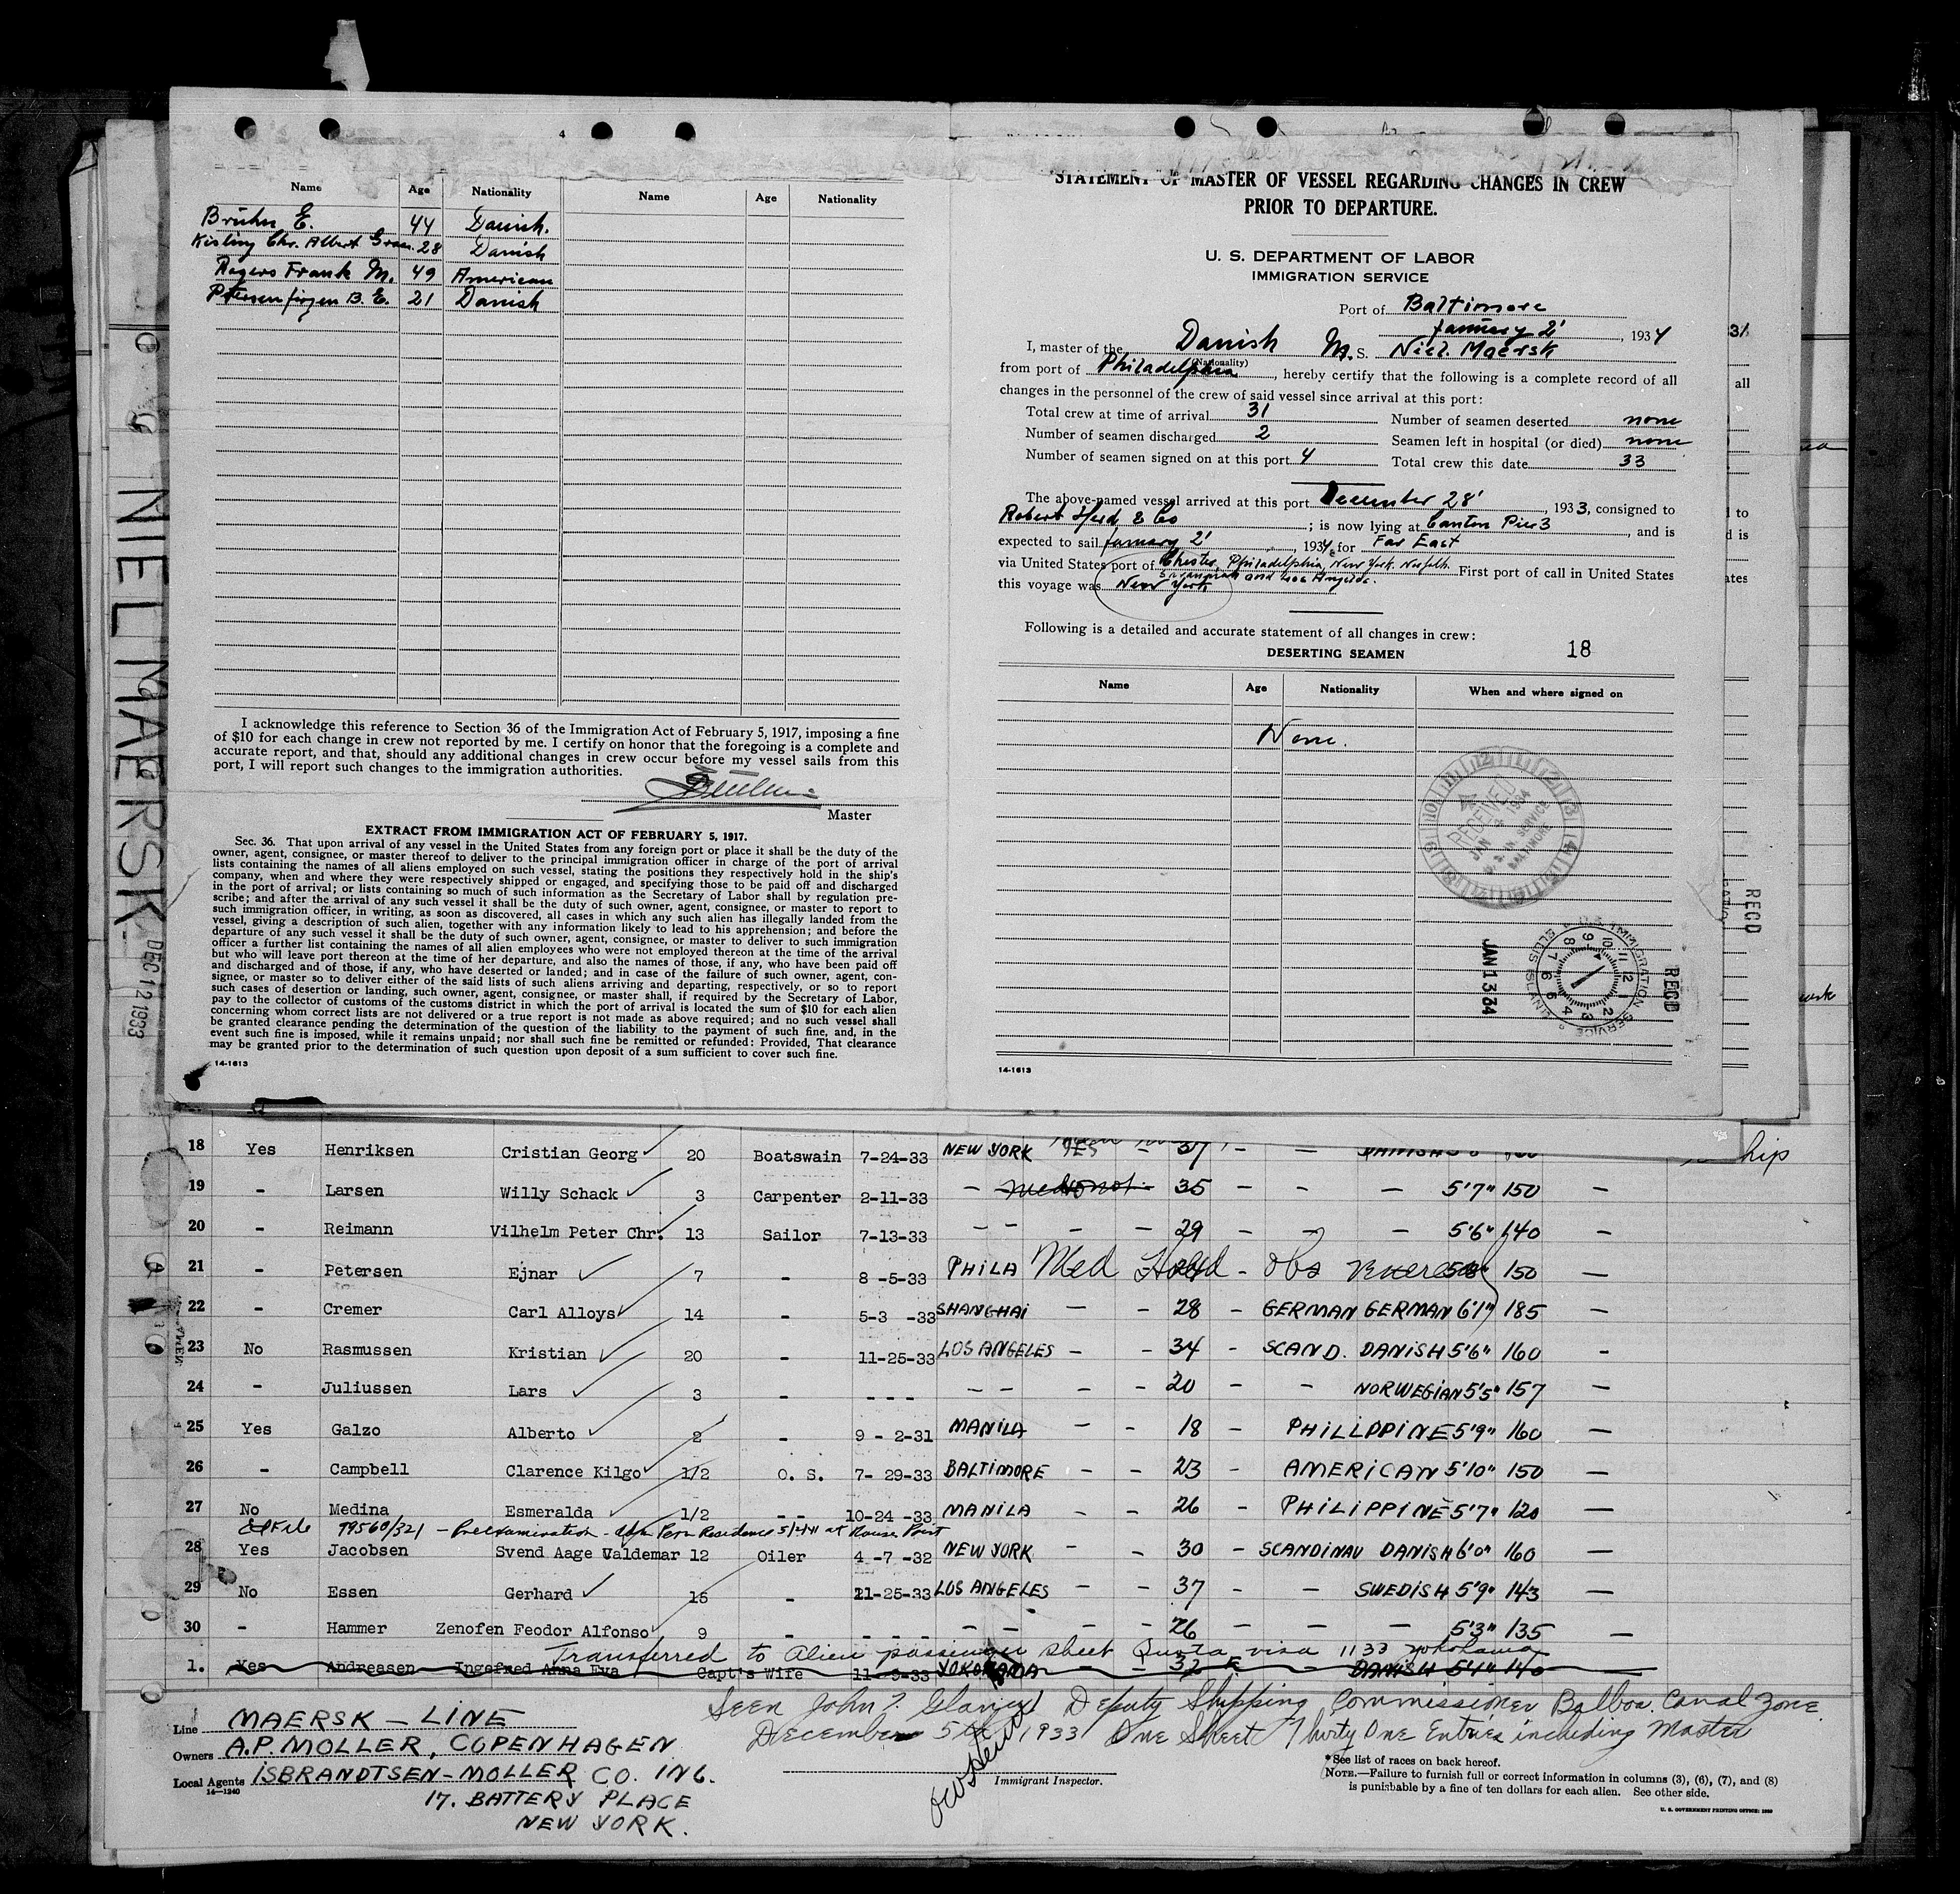 4
Name Age Nationality Name Age Nationality
Bruhn E. 44 Danish.
Kisling Chr. Albert 28 Danish
Rogers Frank M. 49 American
Petersen Jörgen B. E. 21 Danish
I acknowledge this reference to Section 36 of the Immigration Act of February 5, 1917, imposing a fine
of $10 for each change in crew not reported by me. I certify on honor that the foregoing is a complete and
accurate report, and that, should any additional changes in crew occur before my vessel sails from this
port, I will report such changes to the immigration authorities.
Master
EXTRACT FROM IMMIGRATION ACT OF FEBRUARY 5, 1917.
Sec. 36. That upon arrival of any vessel in the United States from any foreign port or place it shall be the duty of the
owner, agent, consignee, or master thereof to deliver to the principal immigration officer in charge of the port of arrival
lists containing the names of all aliens employed on such vessel, stating the positions they respectively hold in the ship's
company, when and where they were respectively shipped or engaged, and specifying those to be paid off and discharged
in the port of arrival; or lists containing so much of such information as the Secretary of Labor shall by regulation pre-
scribe; and after the arrival of any such vessel it shall be the duty of such owner, agent, consignee, or master to report to
such immigration officer, in writing, as soon as discovered, all cases in which any such alien has illegally landed from the
vessel, giving a description of such alien, together with any information likely to lead to his apprehension; and before the
departure of any such vessel it shall be the duty of such owner, agent, consignee, or master to deliver to such immigration
officer a further list containing the names of all alien employees who were not employed thereon at the time of the arrival
but who will leave port thereon at the time of her departure, and also the names of those, if any, who have been paid off
and discharged and of those, if any, who have deserted or landed; and in case of the failure of such owner, agent, con-
signee, or master so to deliver either of the said lists of such aliens arriving and departing, respectively, or so to report
such cases of desertion or landing, such owner, agent, consignee, or master shall, if required by the Secretary of Labor,
pay to the collector of customs of the customs district in which the port of arrival is located the sum of $10 for each alien
concerning whom correct lists are not delivered or a true report is not made as above required; and no such vessel shall
be granted clearance pending the determination of the question of the liability to the payment of such fine, and, in the
event such fine is imposed, while it remains unpaid; nor shall such fine be remitted or refunded: Provided, That clearance
may be granted prior to the determination of such question upon deposit of a sum sufficient to cover such fine.
14-1613
STATEMENT OF MASTER OF VESSEL REGARDING CHANGES IN CREW
PRIOR TO DEPARTURE.
U. S. DEPARTMENT OF LABOR
IMMIGRATION SERVICE
Port of Baltimore
January 2', 1934
I, master of the Danish M. S. Niel Maersk
(Nationality)
from port of Philadelphia, hereby certify that the following is a complete record of all
changes in the personnel of the crew of said vessel since arrival at this port:
Total crew at time of arrival 31 Number of seamen deserted none
Number of seamen discharged 2 Seamen left in hospital (or died) none
Number of seamen signed on at this port 4 Total crew this date 33
The above-named vessel arrived at this port December 28', 1933, consigned to
Robert Herd & Co; is now lying at Canton Pier 3, and is
expected to sail January 2', 1934, for Far East
via United States port of Chester, Philadelphia, New York, Norfolk. First port of call in United States
Savannah and Los Angeles.
this voyage was New York
Following is a detailed and accurate statement of all changes in crew:
DESERTING SEAMEN 18
Name Age Nationality When and where signed on
None.
RECEIVED
JAN 2 1934
IM'N SERVICE
BALTIMORE
U.S. IMMIGRATION SERVICE
ELLIS ISLAND
RECD
JAN 13 34
14-1613
RECD
NIEL MAERSK
DEC 12 1933
18 Yes Henriksen Cristian Georg 20 Boatswain 7-24-33 NEW YORK YES - 37 - - DANISH
hip
19 - Larsen Willy Schack 3 Carpenter 2-11-33 - 35 - - - 5'7" 150 -
20 - Reimann Vilhelm Peter Chr. 13 Sailor 7-13-33 - - - - 29 - - - 5'6" 140 -
21 - Petersen Ejnar 7 - 8 -5-33 PHILA Med Hold - Obs Venereal 150 -
22 - Cremer Carl Alloys 14 - 5-3 -33 SHANGHAI - - 28 - GERMAN GERMAN 6'1" 185 -
23 No Rasmussen Kristian 20 - 11-25-33 LOS ANGELES - - 34 - SCAND. DANISH 5'6" 160 -
24 - Juliussen Lars 3 - - - - - - - - 20 - - NORWEGIAN 5'5" 157 -
25 Yes Galzo Alberto 2 - 9 - 2-31 MANILA - - 18 - PHILIPPINE 5'9" 160 -
26 - Campbell Clarence Kilgo 1/2 O. S. 7- 29-33 BALTIMORE - - 23 - AMERICAN 5'10" 150 -
27 No Medina Esmeralda 1/2 - - 10-24 -33 MANILA - - 26 - PHILIPPINE 5'7" 120 -
File 99560/321 - Preexamination - Perm Residence 5/2/41 at Rouses Point
28 Yes Jacobsen Svend Aage Valdemar 12 Oiler 4 -7 -32 NEW YORK - - 30 - SCANDINAV DANISH 6'0" 160 -
29 No Essen Gerhard 15 - 11-25-33 LOS ANGELES - - 37 - - SWEDISH 5'9" 143 -
30 - Hammer Zenofen Feodor Alfonso 9 - - - - - - - - 26 - - - 5'3" 135 -
Transferred to Alien passenger sheet Quota visa 1133 Yokohama
1. Yes Andreasen Ingefred Anna Eva Capt's Wife 11-9-33 YOKOHAMA - - 32 F - DANISH 5'4" 140 -
Seen John Glancy Deputy Shipping Commissioner Balboa Canal Zone
December 5th 1933 One Sheet Thirty One Entries including Master
Line MAERSK - LINE
Owners A.P. MOLLER, COPENHAGEN
Local Agents ISBRANDTSEN-MOLLER CO. INC.
14-1240
17. BATTERY PLACE
NEW YORK.
Immigrant Inspector.
*See list of races on back hereof.
NOTE.—Failure to furnish full or correct information in columns (3), (6), (7), and (8)
is punishable by a fine of ten dollars for each alien. See other side.
U. S. GOVERNMENT PRINTING OFFICE: 1930